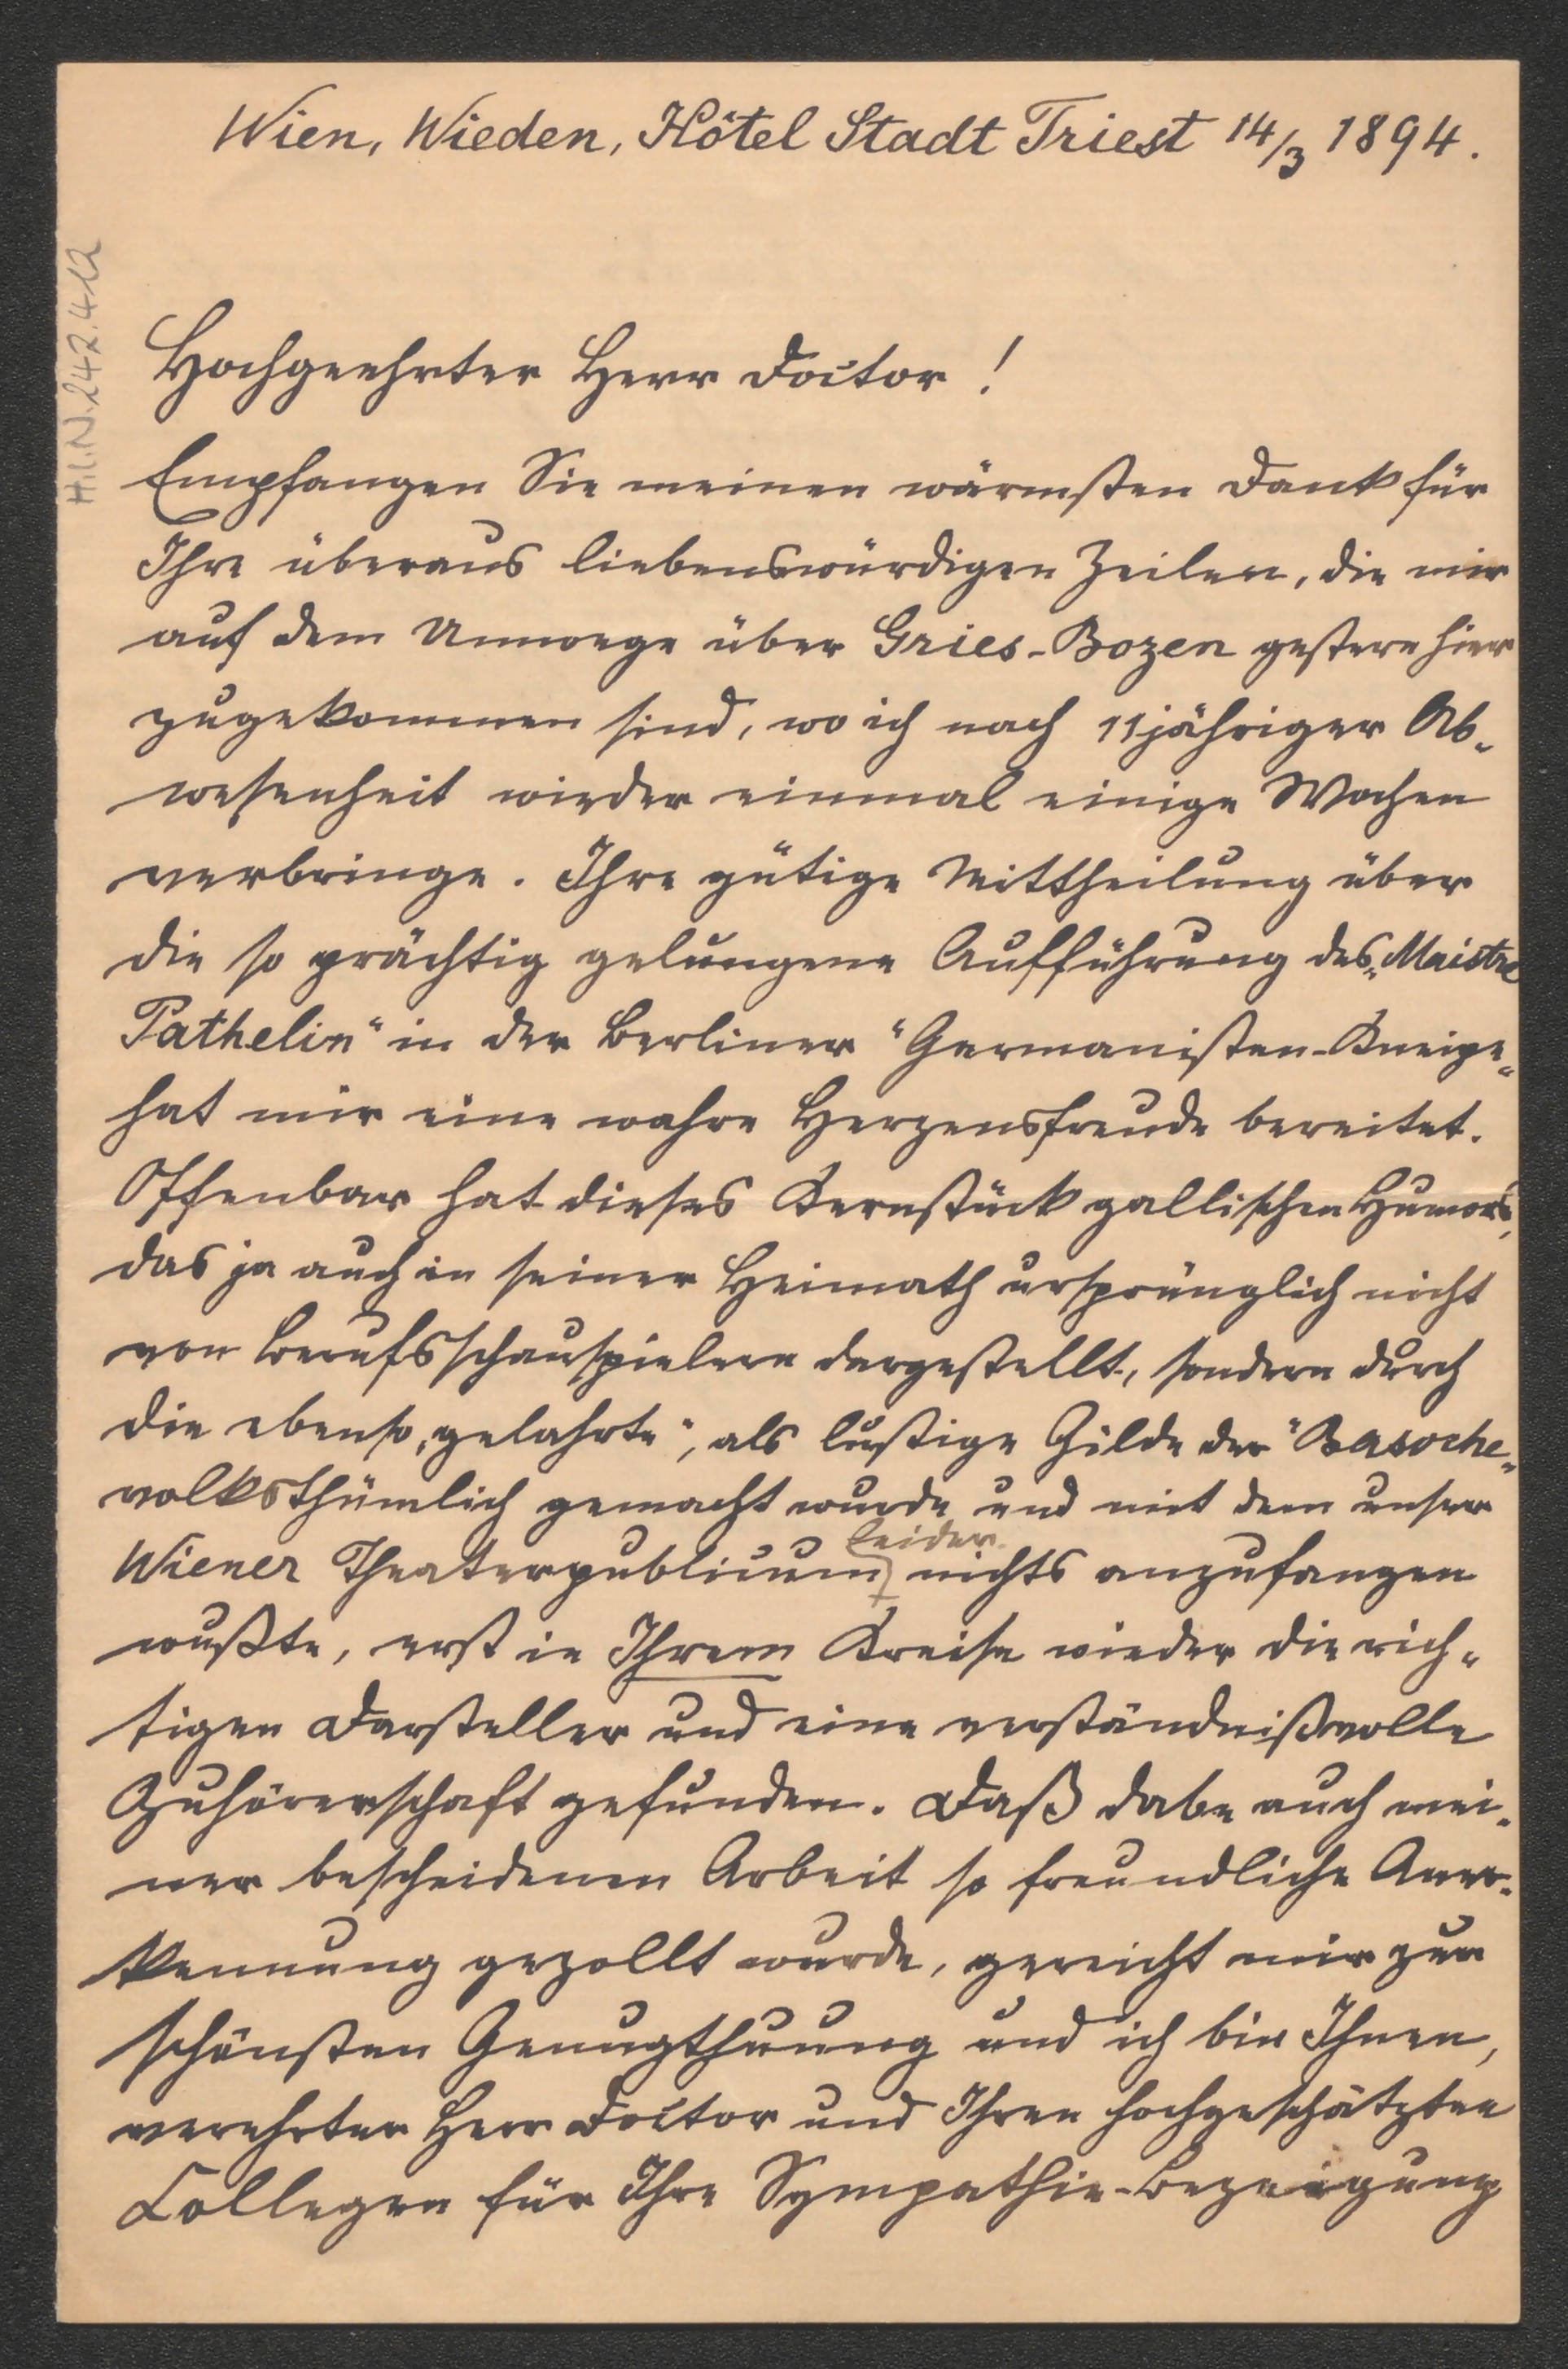 Wien, Wieden, Hôtel Stadt Triest 14/3 1894.
H.I.N. 242.412
Hochgeehrter Herr Doctor!
Empfangen Sie meinen wärmsten Dank für
Ihre überaus liebenswürdigen Zeilen, die mir
auf dem Umwege über Gries-Bozen gestern hier
zugekommen sind, wo ich nach 11jähriger Ab-
wesenheit wieder einmal einige Wochen
verbringe. Ihre gütige Mittheilung über
die so prächtig gelungene Aufführung des „Maistre
Pathelin“ in der Berliner "Germanisten-Kneipe„
hat mir eine wahre Herzensfreude bereitet.
Offenbar hat dieses Kernstück gallischen Humors,
das ja auch in seiner Heimath ursprünglich nicht
von Berufsschauspielern dargestellt, sondern durch
die ebenso „gelahrte“, als lustige Gilde der "Basoche„
volksthümlich gemacht wurde und mit dem unser
Wiener Theaterpublicum leider nichts anzufangen
wußte, erst in Ihrem Kreise wieder die rich-
tigen Darsteller und eine verständnißvolle
Zuhörerschaft gefunden. Daß dabei auch mei-
ner bescheidenen Arbeit so freundliche Aner-
kennung gezollt wurde, gereicht mir zur
schönsten Genugthuung und ich bin Ihnen,
verehrter Herr Doctor und Ihren hochgeschätzten
Collegen für Ihre Sympathie-Bezeigung